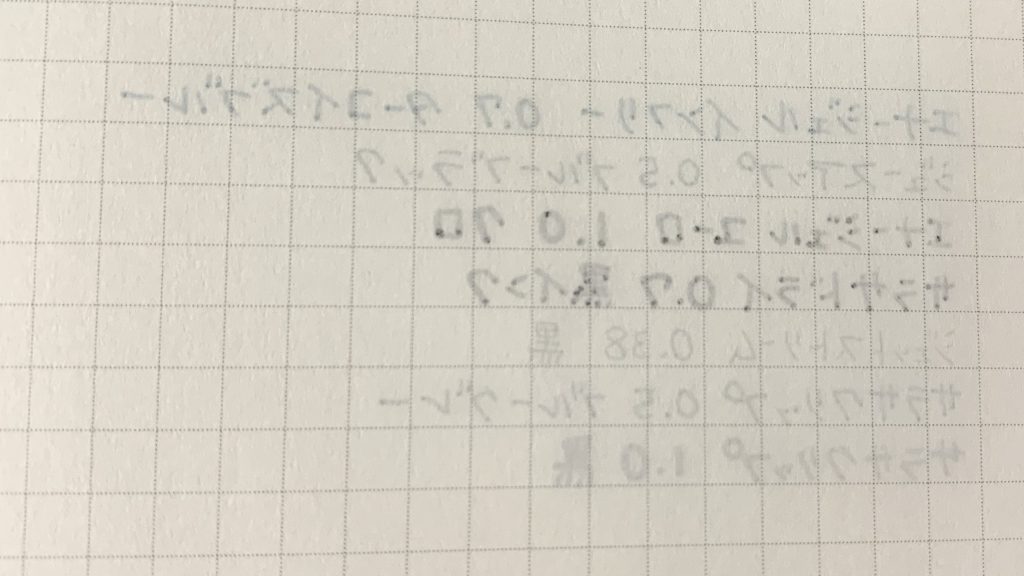 エナージェル インフリー 0.7 ターコイズブルー
ジュースアップ 0.5 ブルーブラック
エナージェル ユーロ 1.0 クロ
サラサドライ 0.7 黒インク
ジェットストリーム 0.38 黒
サラサクリップ 0.5 ブルーグレー
サラサクリップ 1.0 黒